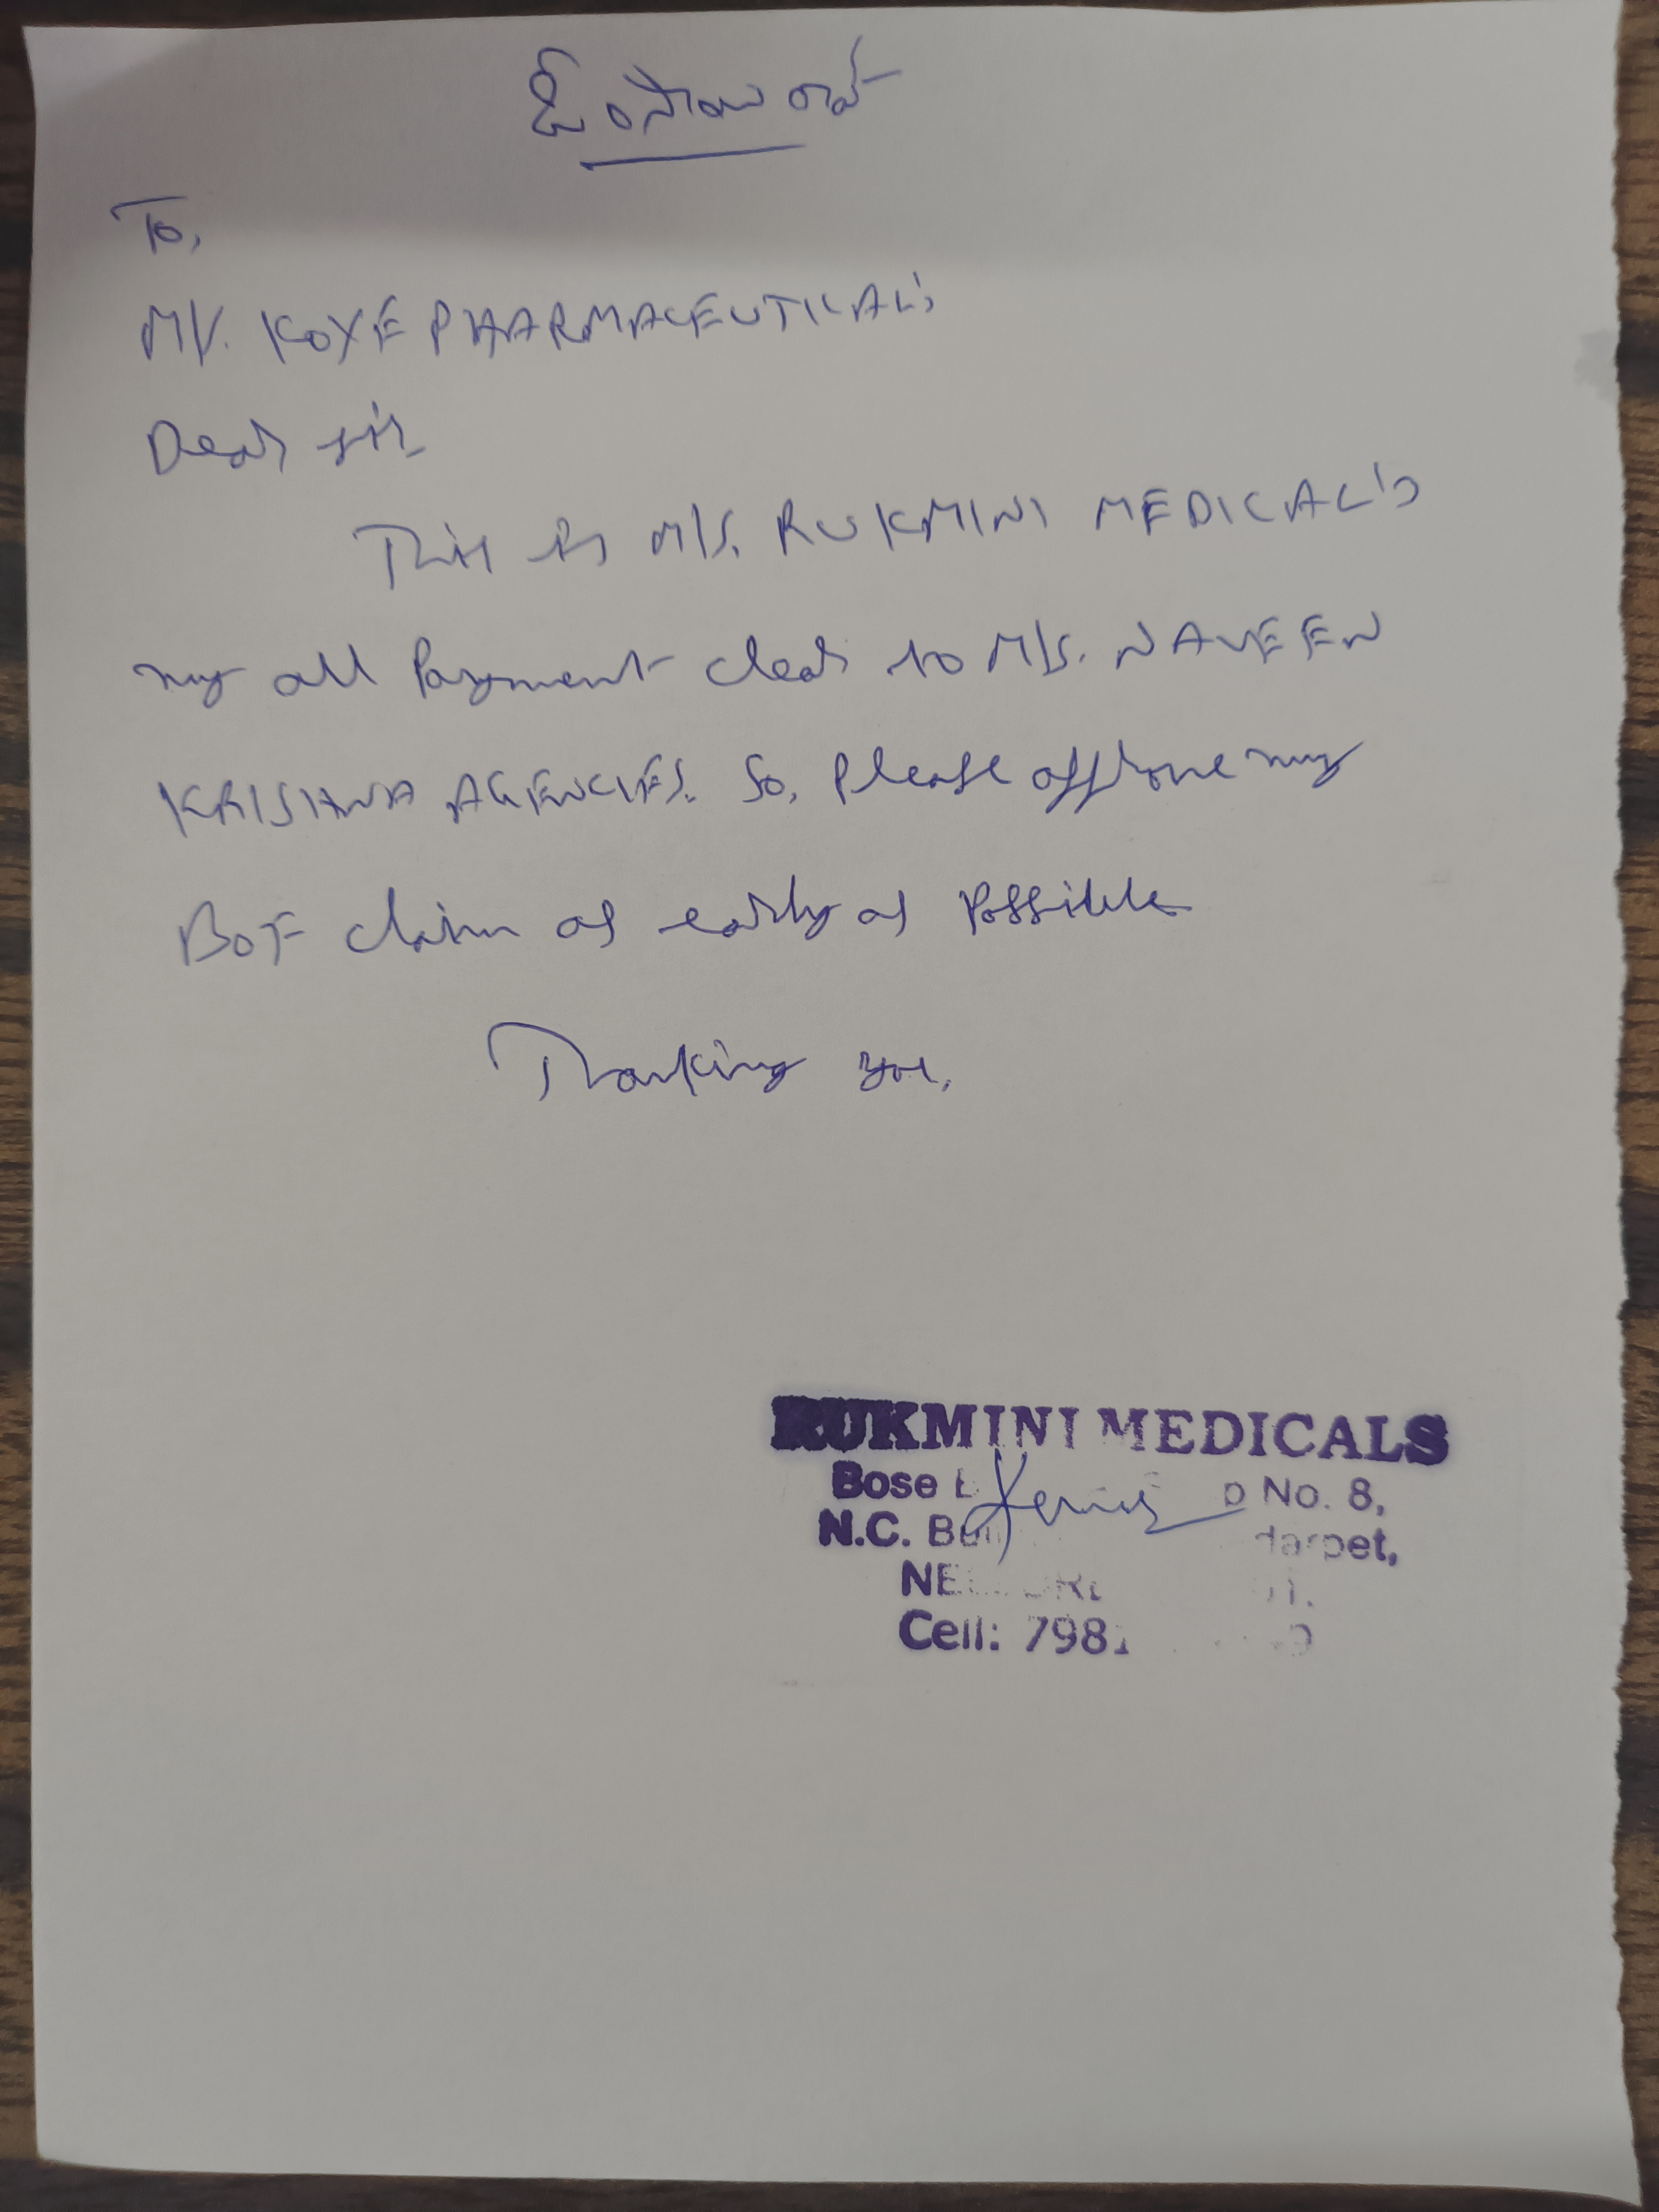 ఓం సాయి రామ్
To,
M/s. KOYE PHARMACEUTICAL's
Dear sir
This is M/s. RUKMINI MEDICAL's
my all Payment clear to M/s. NAVEEN
KRISHNA AGENCIES. So, please approve my
BOF claim as early as possible
Thanking you,
RUKMINI MEDICALS
Bose No. 8,
N.C.
Cell: